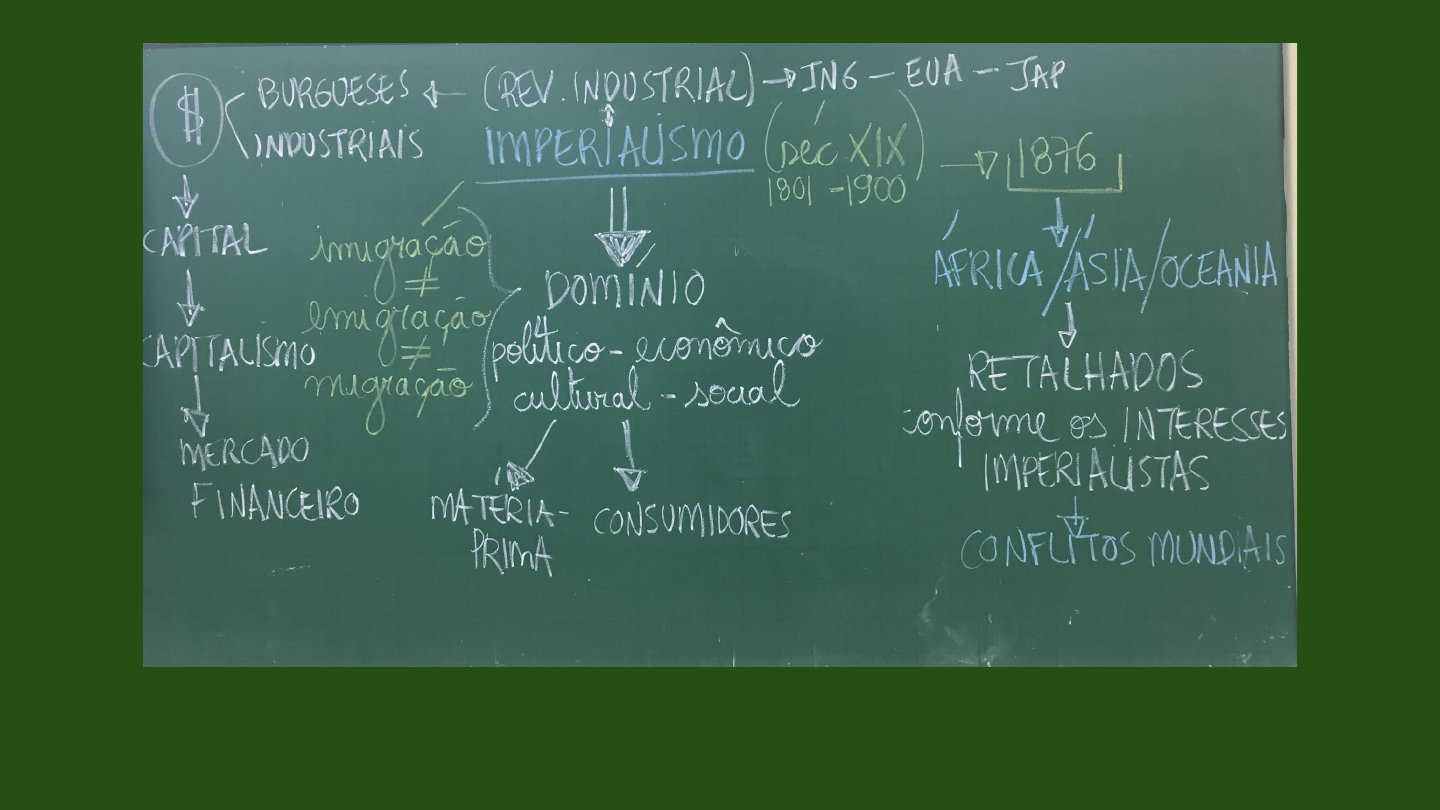 $ BURGUESES ← (REV. INDUSTRIAL) → ING - EUA - JAP
INDUSTRIAIS
IMPERIALISMO (séc XIX) → 1876
1801 - 1900
CAPITAL
CAPITALISMO
MERCADO
FINANCEIRO
imigração
≠
emigração
≠
migração
DOMÍNIO
político - econômico
cultural - social
MATÉRIA-
PRIMA
CONSUMIDORES
ÁFRICA/ÁSIA/OCEANIA
RETALHADOS
conforme os INTERESSES
IMPERIALISTAS
CONFLITOS MUNDIAIS